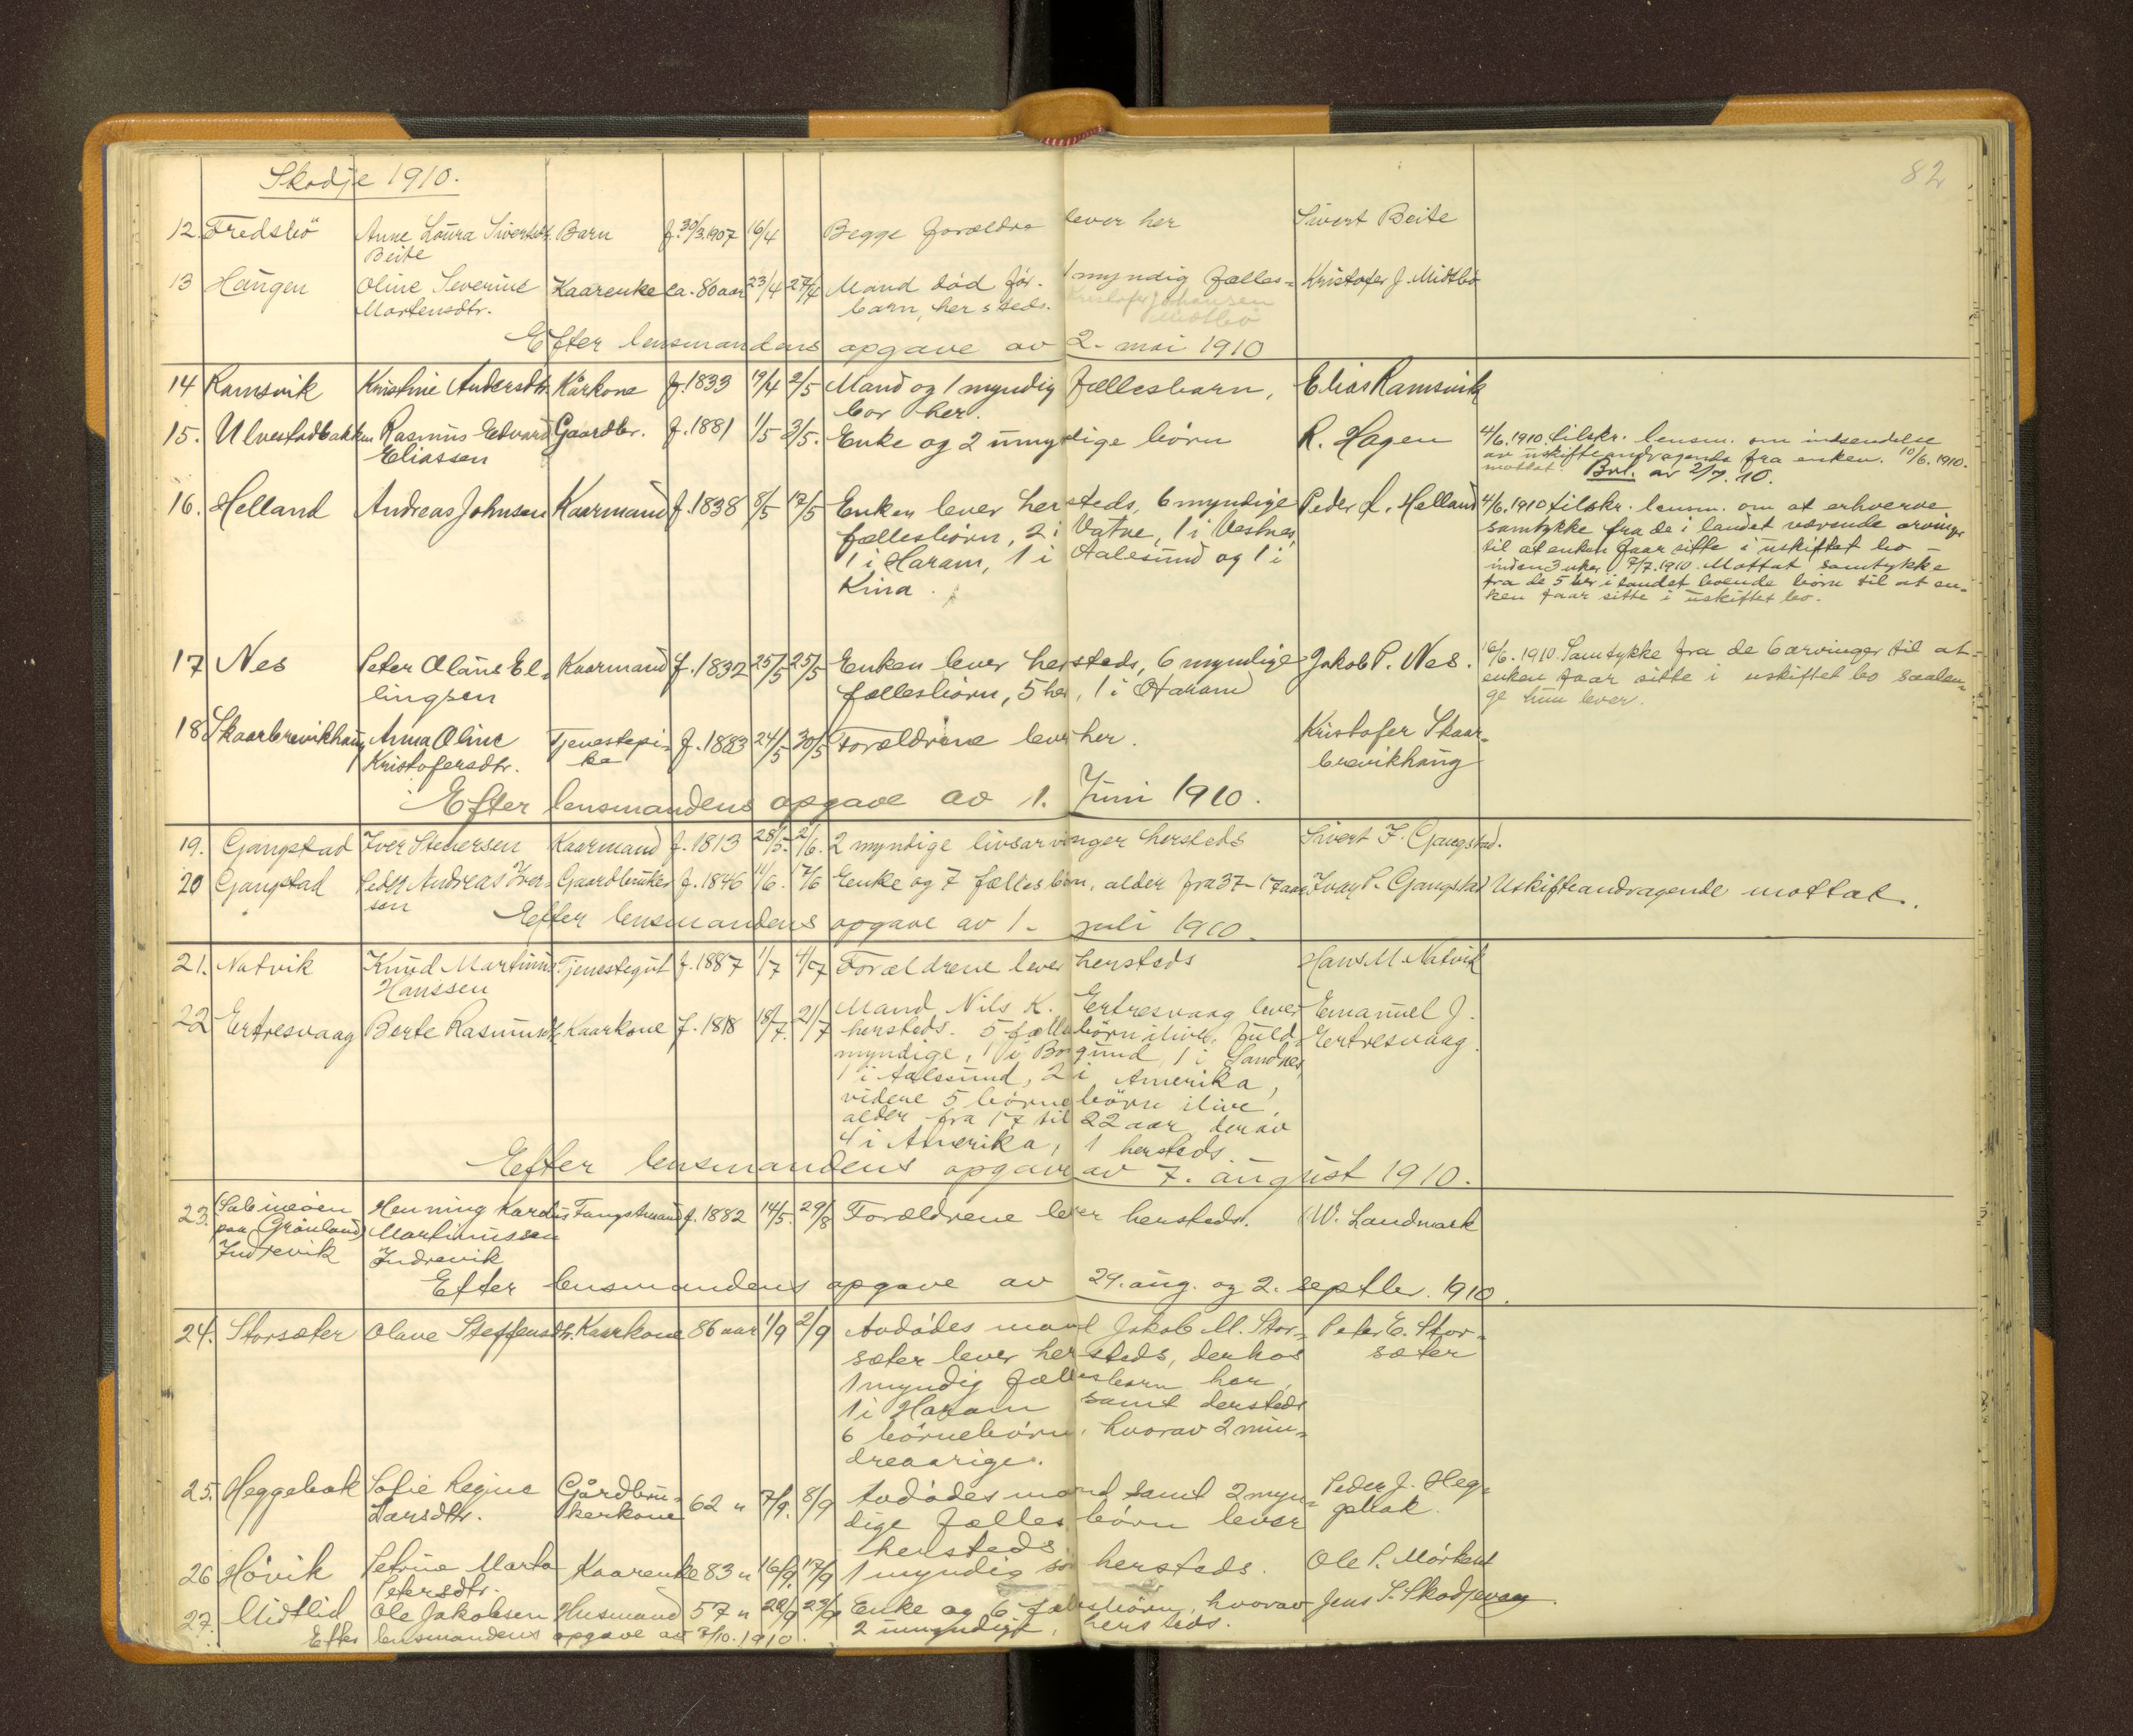 82
Skodje 1910.
12. Fredsbö Anne Loura Sivertsdtr. Barn f. 30/3.1907 16/4 Begge forældre lever her Sivert Beite
Beite
13 Haugen Oline Severine Kaarenke ca. 80 aar 23/4 27/4 Mand död før. 1 myndig fælles= Kristofer J. Midtbö
Martensdtr. barn, hersteds. Kristofer Johansen
Midtbö
Efter lensmandens opgave av 2. mai 1910
14 Ramsvik Kristine Andersdtr. Kårkone f. 1833 19/4 2/5 Mand og 1 myndig fællesbarn, Elias Ramsvik
bor her.
15. Ulvestadbakken Rasmus Edvard Gaardbr. f. 1881 1/5 3/5. Enke og 2 umyndige børn R. Hagen 4/6.1910. tilskr. lensm. om indsendelse
Eliassen av uskifteandragende fra enken. 10/6.1910.
mottat. Bvl. av 2/7.10.
16. Helland Andreas Johnsen Kaarmand f. 1838 8/5 17/5 Enken lever hersteds, 6 myndige Peder L. Helland 4/6.1910 tilskr. lensm. om at erhverve
samtykke fra de i landet værende arvinger
fællesbörn, 2 i Vatne, 1 i Vestnes,
til at enken faar sitte i uskiftet bo –
1 i Haram, 1 i Aalesund og 1 i
inden 3 uker 7/7.1910. Mottat samtykke
Kina.
fra de 5 her i landet boende börn til at en=
ken faar sitte i uskiftet bo.
17 Nes Peter Olaus El= Kaarmand f. 1832 25/5 25/5 Enken lever hersteds, 6 myndige Jakob P. Nes. 16/6.1910. Samtykke fra de 6 arvinger til at
lingsen fællesbörn, 5 her, 1 i Haram enken faar sitte i uskiftet bo saalen=
ge hun lever.
18 Skaarbrevikhaug Anna Oline Tjenestepi= f. 1883 24/5 30/5 Forældrene lever her. Kristofer Skaar=
Kristofersdtr. ke brevikhaug
Efter lensmandens opgave av 1. Juni 1910.
19. Gangstad Iver Stenersen Kaarmand f. 1813 28/5. 2/6. 2 myndige livsarvinger hersteds Sivert I. Gangstad.
20 Gangstad Peder Andreas Iver= Gaardbruker f. 1846 11/6. 17/6 Eenke og 7 fælles börn, alder fra 37–17 aar Ivar P. Gangstad Uskifteandragende mottat.
sen
Efter lensmandens opgave av 1. juli 1910.
21. Natvik Knud Martinus Tjenestegut f. 1887 1/7 4/7 Forældrene lever hersteds Hans M. Natvik
Hanssen
22 Ertresvaag Berte Rasmusdtr. Kaarkone f. 1818 18/7. 21/7 Mand Nils K. Eertresvaag lever Emanuel J.
hersteds. 5 fællesbörn ilive, fuld= Eertresvaag.
myndige, 1 i Borgund, 1 i Sandnes,
1 i Aalesund, 2 i Amerika,
videre 5 börnebörn ilive,
alder fra 17 til 22 aar, derav
4 i Amerika, 1 hersteds.
Efter lensmandens opgave av 7. august 1910.
23. Sabineöen Henning Kardus Fangstmand f. 1882 14/5. 29/8 Forældrene lever hersteds. W. Landmark
paa Grönland, Martinussen
Indrevik Indrevik
Efter lensmandens opgave av 29. aug. og 2. septbr. 1910.
24. Storsæter Olave Steffensdtr. Kaarkone 86 aar 1/9 2/9 Avdödes mand Jakob M. Stor= Peter E. Stor=
sæter lever hersteds, derhos sæter
1 myndig fællesbarn her,
1 i Haram samt dersteds
6 börnebörn, hvorav 2 min=
dreaarige.
25. Heggebak Sofie Regine Gårdbru= 62 " 7/9. 8/9 Avdödes mand samt 2 myn= Peder J. Heg=
Larsdtr. kerkone dige fælles börn lever gebak.
hersteds.
26 Hövik Petrine Marta Kaarenke 83 " 16/9. 17/9 1 myndig sön hersteds. Ole P. Mörkset
Petersdtr.
27. Midtlid Ole Jakobsen Husmand 57 " 22/9 23/9 Enke og 6 fællesbörn, hvorav Jens P. Skodjevaag
2 umyndige, hersteds.
Efter lensmandens opgave av 3/10.1910.